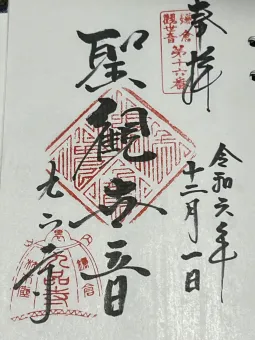 奉拝
令和六年
十二月一日
鎌倉
觀世音
第十六番
聖觀世音
九品寺
鎌倉
九品寺